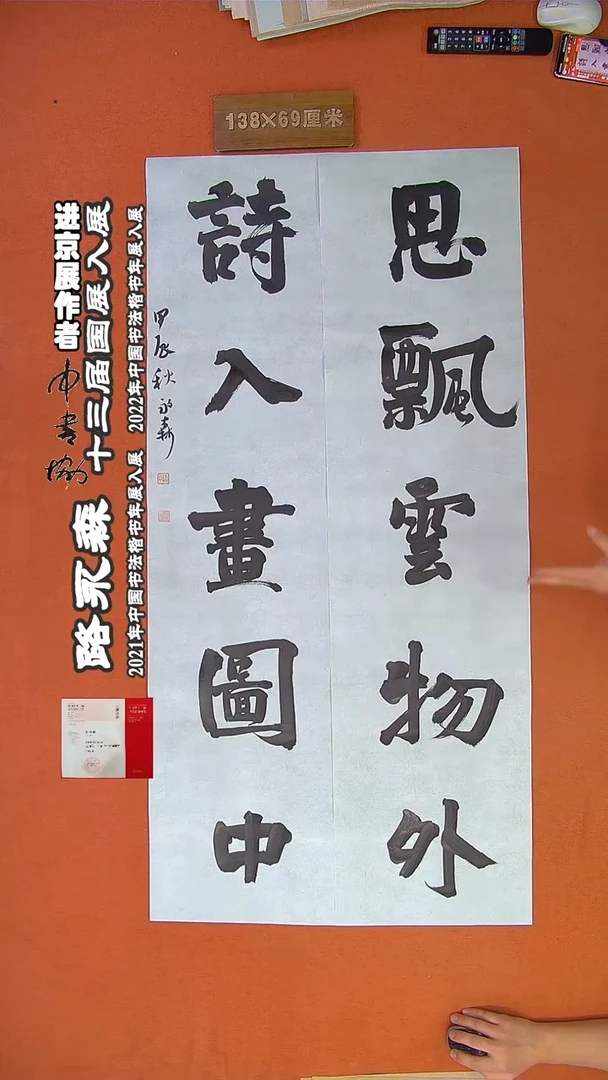 138×69厘米
思飄雲物外
詩入畫圖中
甲辰秋永森
进京展作者
十三届国展入展
路永森
2021年中国书法楷书年展入展
2022年中国书法楷书年展入展